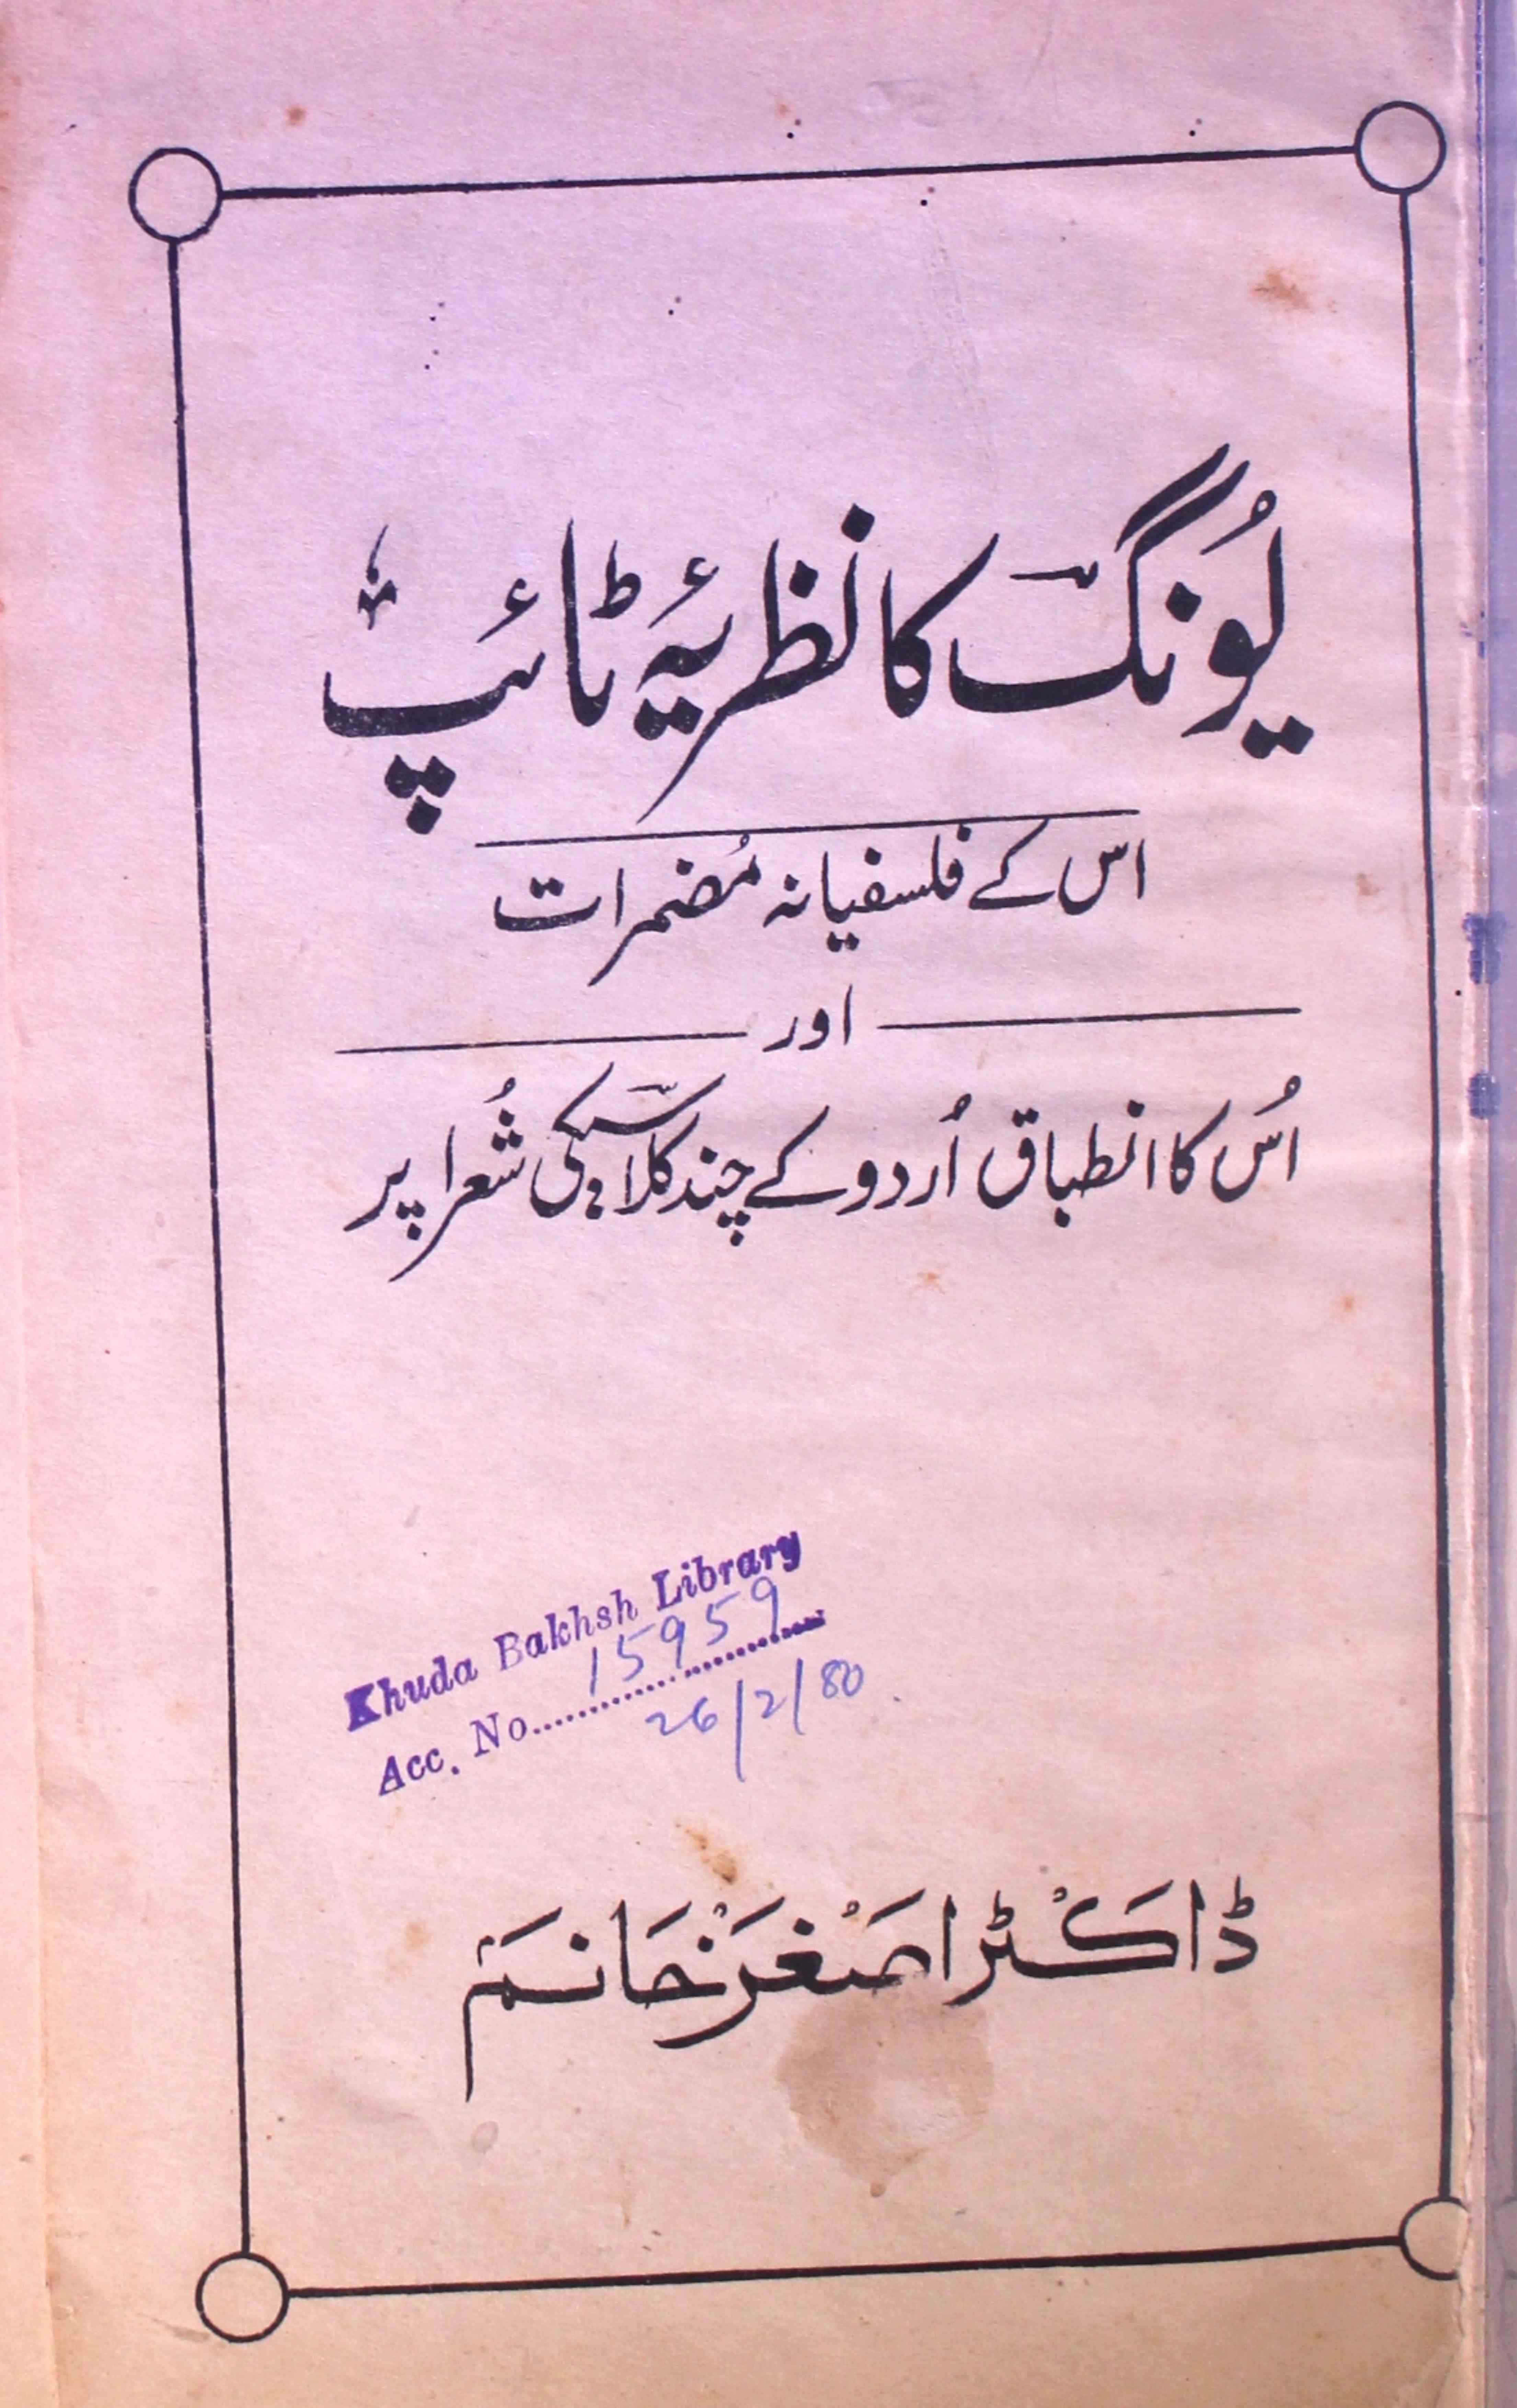 یُونگ کا نظریۂ ٹائپ
اس کے فلسفیانہ مُضمرات
اور
اُس کا انطباق اُردو کے چند کلاسیکی شُعرا پر
Khuda Bakhsh Library
Acc. No. 15959
26/2/80
ڈاکٹر اصغر خانم